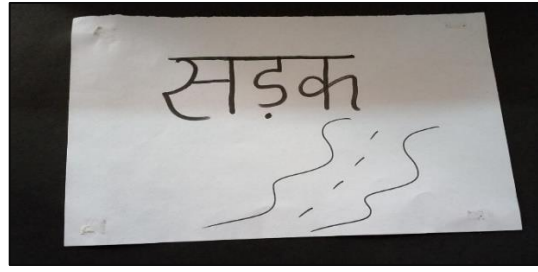 सड़क